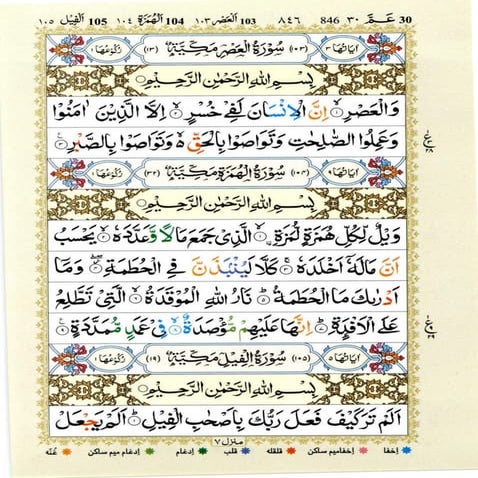 30 عـمّ ٣٠ 846 ٨٤٦ 103 العصر ١٠٣ 104 الهمزة ١٠٤ 105 الفيل ١٠٥
اٰيَاتُهَا ٣ (١٠٣) سُوْرَةُ الْعَصْرِ مَكِّيَّةٌ (١٣) رُكُوْعُهَا ١
بِسْمِ اللّٰهِ الرَّحْمٰنِ الرَّحِيْمِ
وَالْعَصْرِ ۙ﴿١﴾ اِنَّ الْاِنْسَانَ لَفِيْ خُسْرٍ ۙ﴿٢﴾ اِلَّا الَّذِيْنَ اٰمَنُوْا
وَعَمِلُوا الصّٰلِحٰتِ وَتَوَاصَوْا بِالْحَقِّ ۙ۬ وَتَوَاصَوْا بِالصَّبْرِ ﴿٣﴾
اٰيَاتُهَا ٩ (١٠٤) سُوْرَةُ الْهُمَزَةِ مَكِّيَّةٌ (٣٢) رُكُوْعُهَا ١
بِسْمِ اللّٰهِ الرَّحْمٰنِ الرَّحِيْمِ
وَيْلٌ لِّكُلِّ هُمَزَةٍ لُّمَزَةٍ ۙ﴿١﴾ اۨلَّذِيْ جَمَعَ مَالًا وَّعَدَّدَهٗ ۙ﴿٢﴾ يَحْسَبُ
اَنَّ مَالَهٗۤ اَخْلَدَهٗ ۚ﴿٣﴾ كَلَّا لَيُنْۢبَذَنَّ فِي الْحُطَمَةِ ۖ﴿٤﴾ وَمَاۤ
اَدْرٰىكَ مَا الْحُطَمَةُ ؕ﴿٥﴾ نَارُ اللّٰهِ الْمُوْقَدَةُ ۙ﴿٦﴾ الَّتِيْ تَطَّلِعُ
عَلَى الْاَفْـِٕدَةِ ؕ﴿٧﴾ اِنَّهَا عَلَيْهِمْ مُّؤْصَدَةٌ ۙ﴿٨﴾ فِيْ عَمَدٍ مُّمَدَّدَةٍ ﴿٩﴾
اٰيَاتُهَا ٥ (١٠٥) سُوْرَةُ الْفِيْلِ مَكِّيَّةٌ (١٩) رُكُوْعُهَا ١
بِسْمِ اللّٰهِ الرَّحْمٰنِ الرَّحِيْمِ
اَلَمْ تَرَ كَيْفَ فَعَلَ رَبُّكَ بِاَصْحٰبِ الْفِيْلِ ؕ﴿١﴾ اَلَمْ يَجْعَلْ
منزل ٧
اخفا اخفامیم ساکن قلقله قلب ادغام ادغام میم ساکن غُنّه